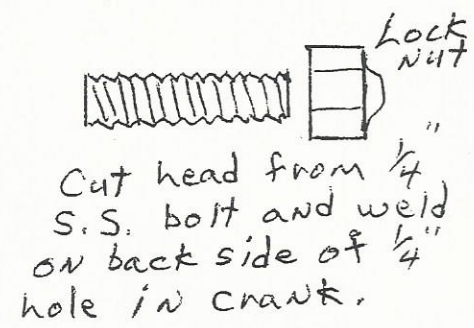 Lock
Nut
Cut head from 1/4"
S.S. bolt and weld
on back side of 1/4"
hole in crank.